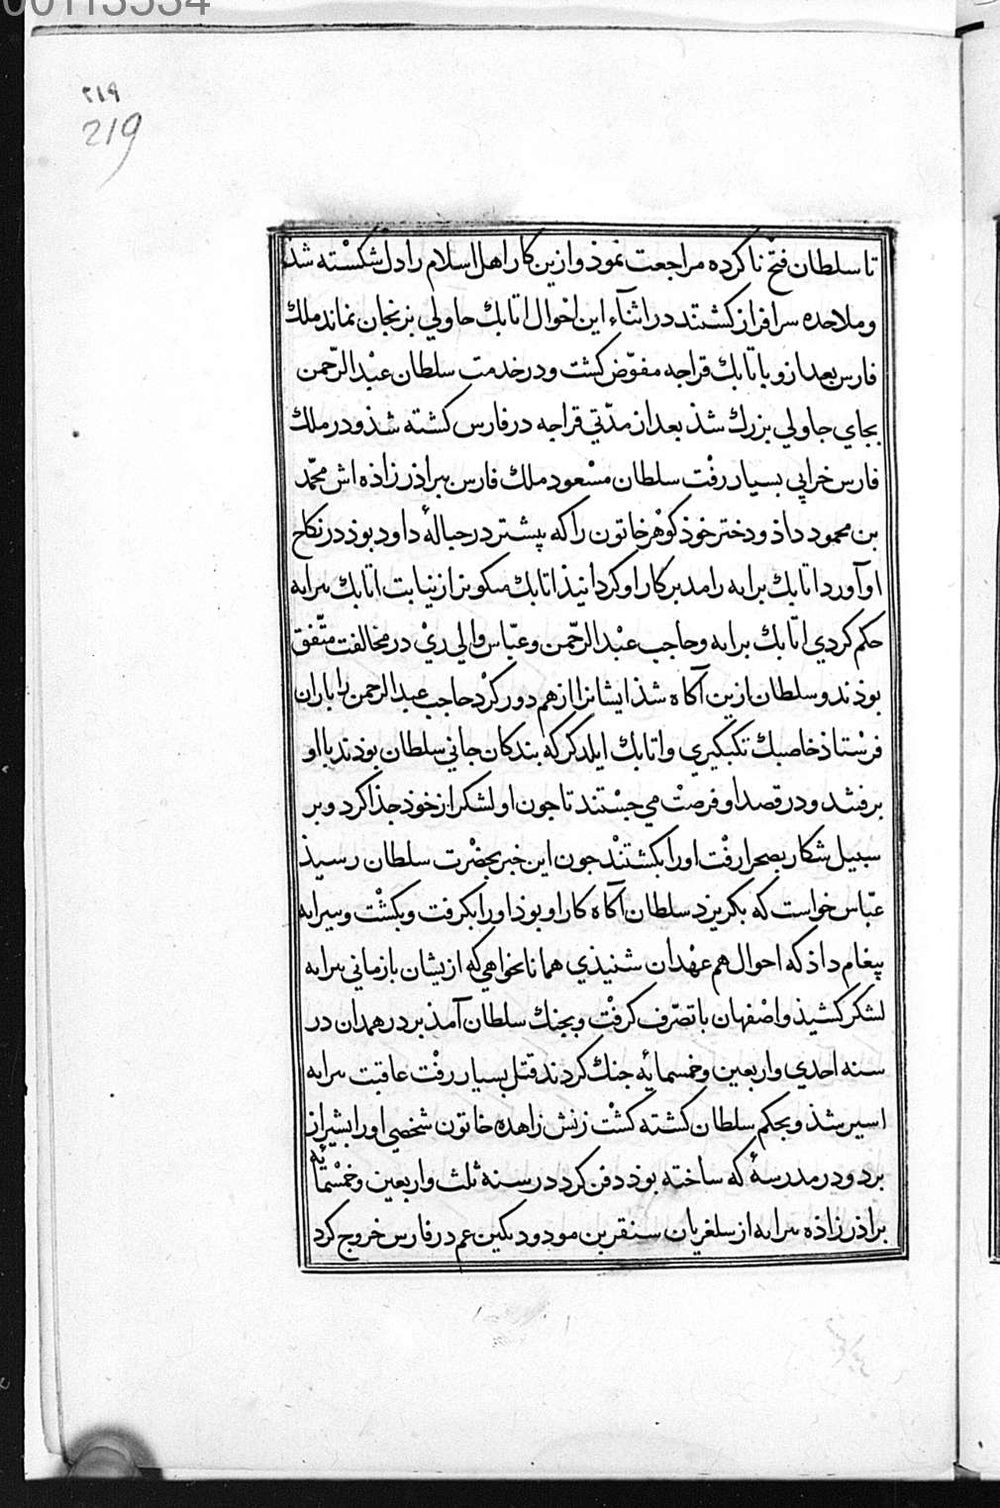 00113534
۲۱۹
219
تا سلطان فتح ناکرده مراجعت نموذ و ازین کار اهل اسلام را دل شکسته شذ
و ملاحده سرافراز کشتند در اثناء این احوال اتابك جاولي بزنجان نماند ملك
فارس بعد ازو باتابك قراجه مفوّض کشت و در خدمت سلطان عبْد الرّحمن
بجاي جاولي بزرك شذ بعد از مدّتي قراجه در فارس کشته شذ و در ملك
فارس خرابی بسیار رفْت سلطان مسْعود ملك فارس ببراذر زاذه اش محمّد
بن محمود داذ و دختر خوذ کوْهر خاتون را که پیشتر در حبالهٔ داود بوذ در نکاح
او آورد اتابك برابه را مدبر کار او کردانیذ اتابك منکوبرز از نیابت اتابك برابه
حکم کردي اتابك برابه و حاجب عبْد الرّحمن و عبّاس والي ريْ در مخالفت متّفق
بوذند و سلطان ازین آکاه شذ ایشانرا از هم دور کرْد حاجب عبد الرحمن را باران
فرسْتاذ خاصبك تکبکیري و اتابك ایلدکز که بندکان جاني سلطان بودند با او
برفتند و در قصد او فرصتْ مي جسْتند تا جون او لشکر از خوذ جذا کرد و بر
سبیل شکار بصحرا رفْت او را بکشتنْد جون این خبر بحضْرت سلطان رسیذ
عبّاس خواست که بکریزد سلطان آکاه کار او بوذ او را بکرفت و بکشْت و ببرابه
پیغام داذ که احوال هم عهْدان شنیذي همانا نخواهي که ازیشان باز ماني برابه
لشکر کشیذ و اصْفهان با تصرّف کرفْت و بجنك سلطان آمذ بر در همدان در
سنه احدي و اربعین و خمسمایهٔ جنك کردند قتل بسیار رفْت عاقبت برابه
اسیر شذ و بحکم سلطان کشته کشْت زنش زاهده خاتون شخصي او را بشیراز
برد و در مدرسهٔ که ساخته بوذ دفن کرد در سنهٔ ثلث و اربعین و خمْسمائه
براذر زاذه برابه از سلغریان سنقر بن مودود بکین عم در فارس خروج کرد